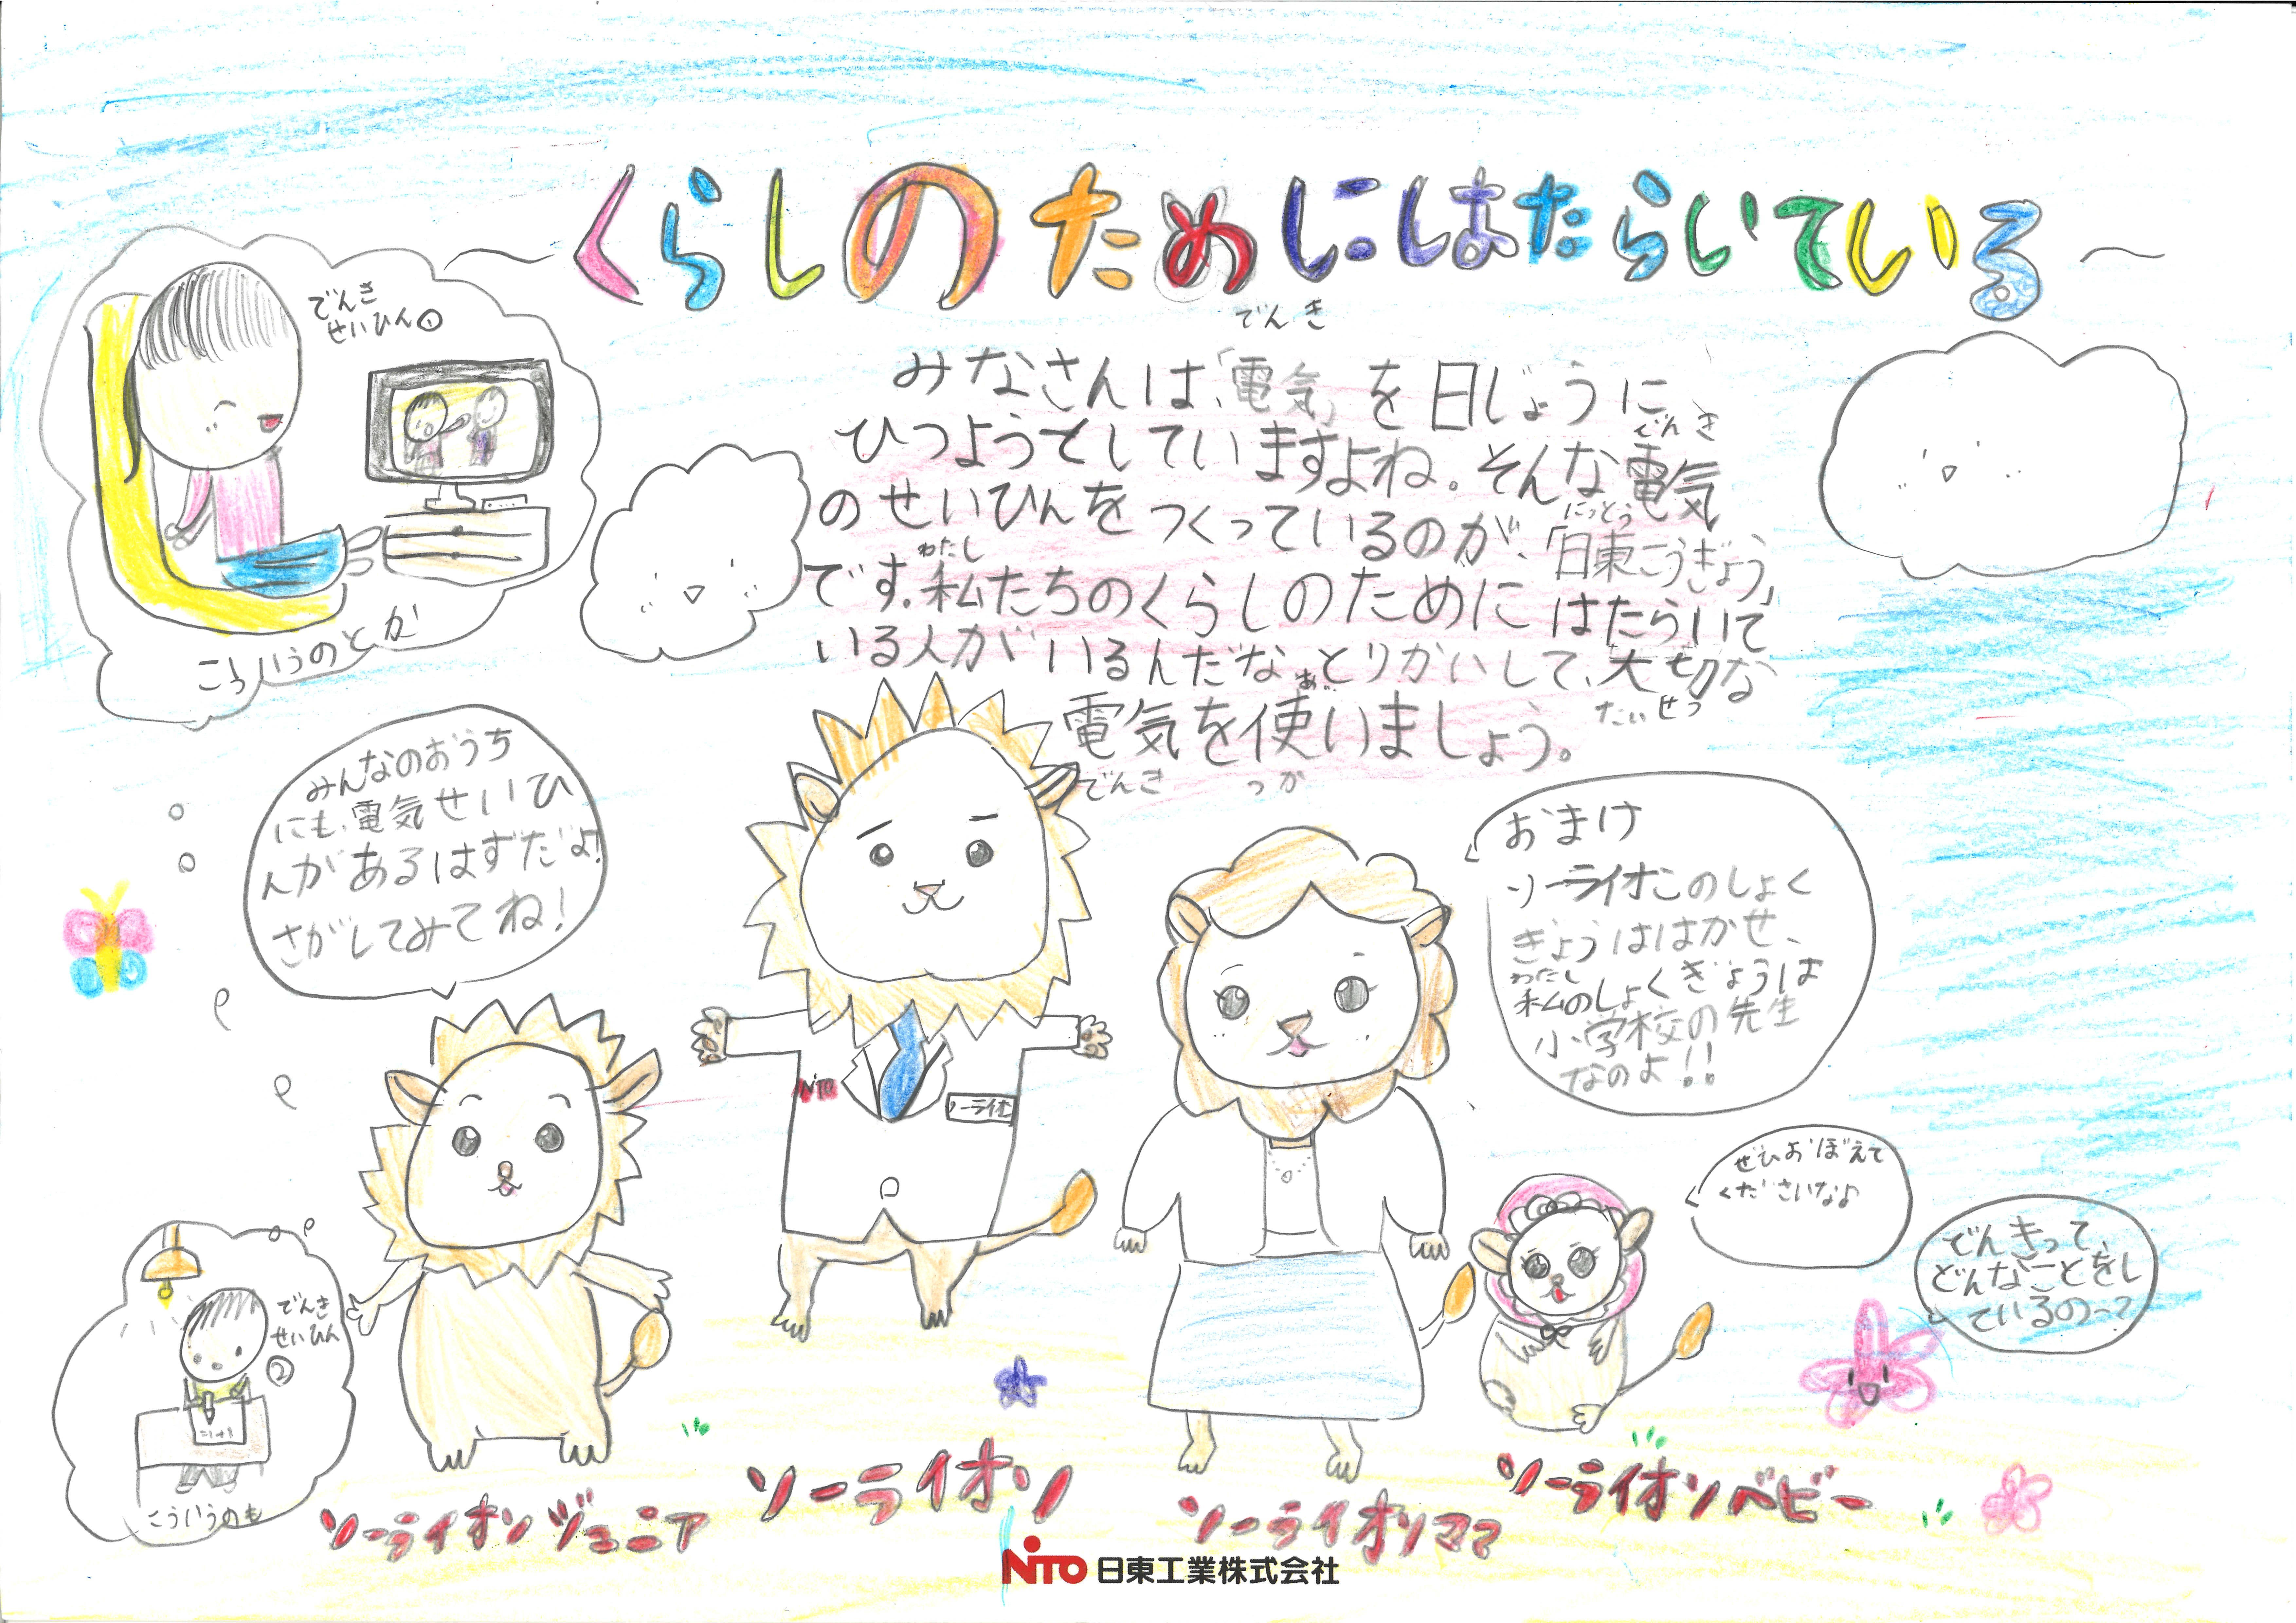 〜くらしのためにはたらいている〜
でんき
せいひん①
こういうのとか
でんき
みなさんは、「電気」を日じょうに、
でんき
ひつようとしていますよね。そんな電気
にっとう
のせいひんをつくっているのが、「日東こうぎょう」
わたし
です。私たちのくらしのためにはたらいて
いる人がいるんだなぁとりかいして、大切な
たいせつ
電気を使いましょう。
でんき つか
みんなのおうち
にも、電気せいひ
んがあるはずだよ!
さがしてみてね!
おまけ
ソーライオンのしょく
ぎょうははかせ、
わたし
私のしょくぎょうは
小学校の先生
なのよ!!
ぜひおぼえて
くださいなよ
でんきって、
どんなことをし
ているのっ?
NiTO
ソーライオン
でんき
せいひん
②
=1+1
こういうのも
ソーライオンジュニア
ソーライオン
ソーライオンママ
ソーライオンベビー
NITO 日東工業株式会社